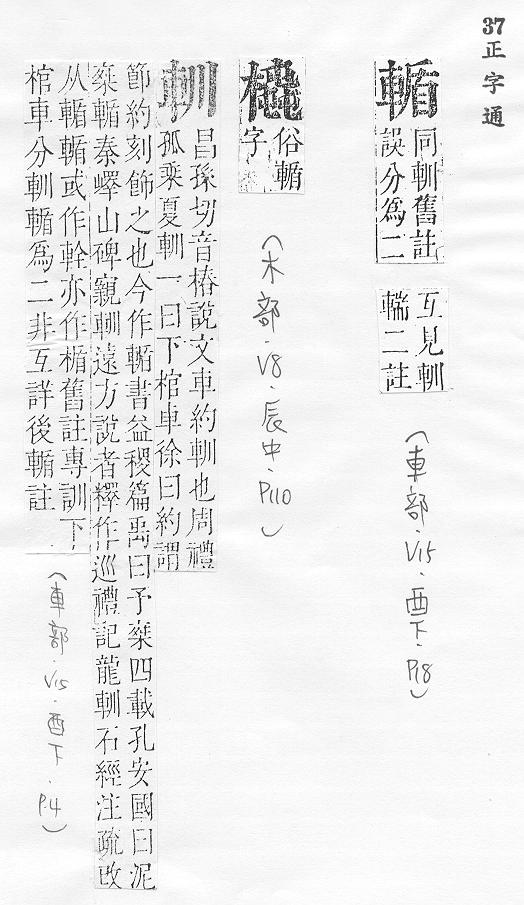 37正字通
輴
同軔舊註
誤分爲二
互見軔
輲二註
（車部·V15·酉下·P18）
俗輴
字
（木部·V8·辰中·P110）
昌孫切音椿說文車約軔也周禮
孤乘夏軔一曰下棺車徐曰約謂
節約刻節之也今作輴書益稷篇禹曰予椉四載孔安國曰泥
椉輴秦嶧山碑窺軔遠方說者釋作巡禮記龍軔石經注疏改
从輴輴或作輇亦作楯舊註專訓下
棺車分軔輴爲二非互詳後輴註
（車部·V15·酉下·P.4）